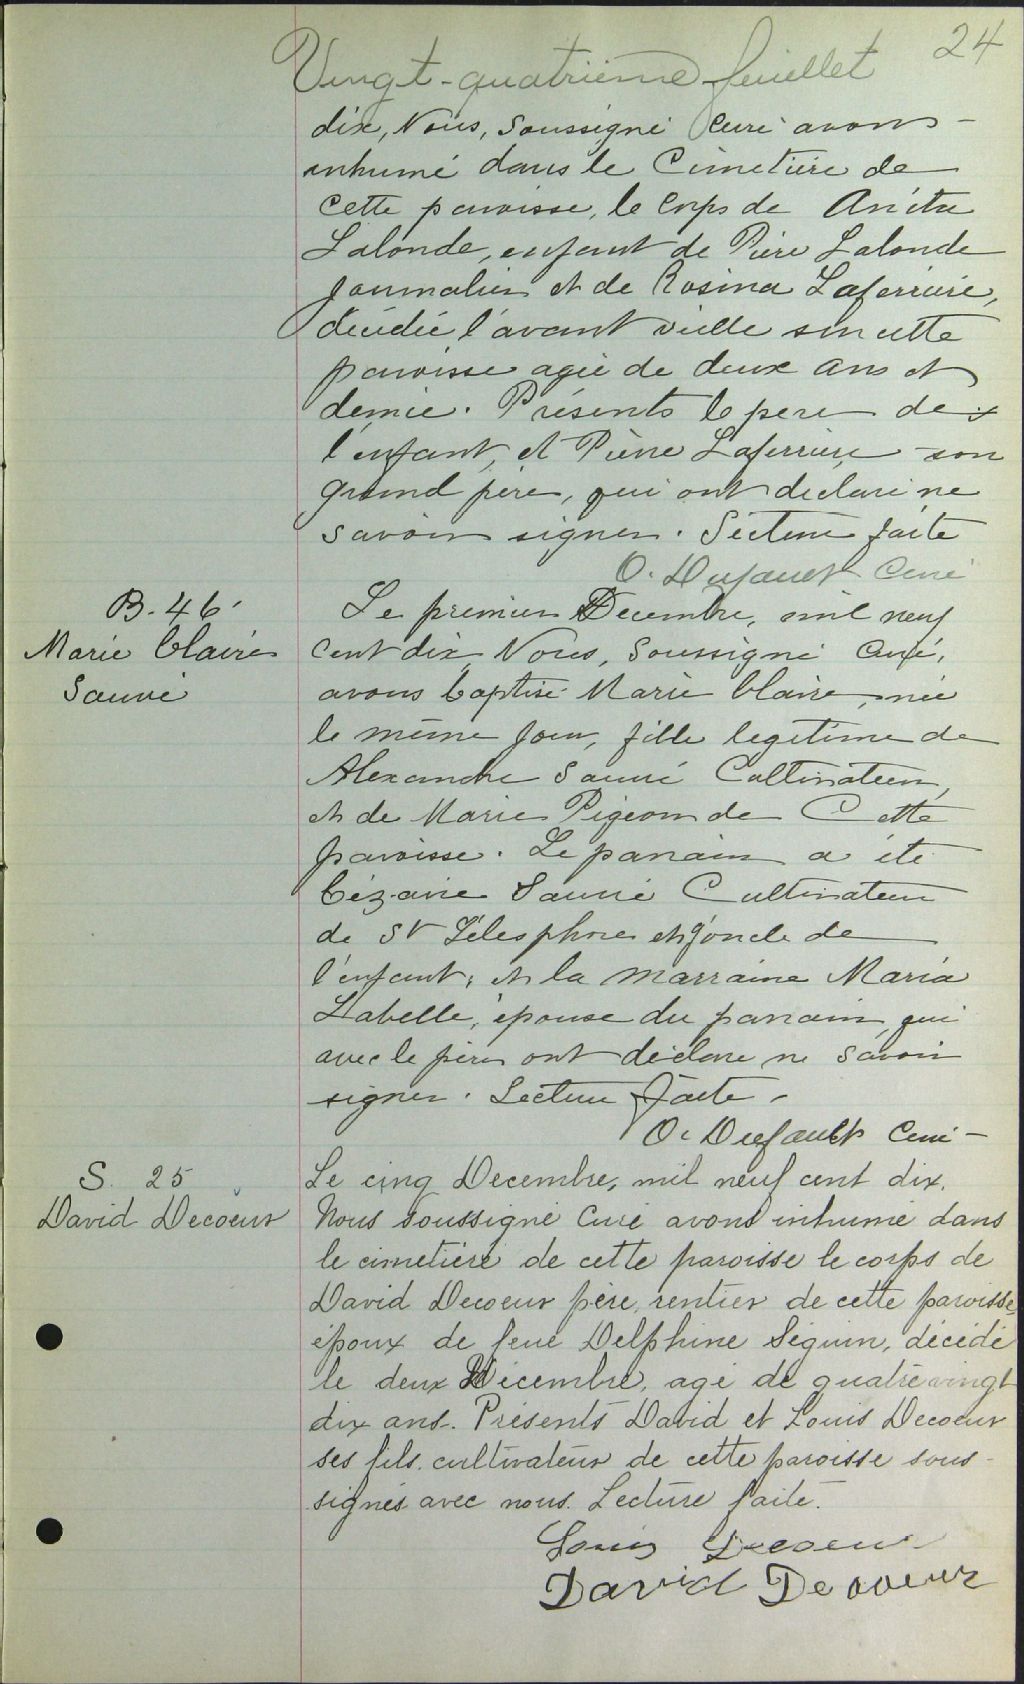 24
Vingt-quatrième feuillet
dix, Nous, Soussigné Curé avons
inhumé dans le Cimetière de
cette paroisse, le Corps de Anita
Lalonde, enfant de Pière Lalonde
journalier et de Rosina Laferrière,
décédée l'avant vielle sur cette
paroisse agée de deux ans et
demie. Présents le père de
l'enfant, et Pierre Laferrière son
Grand père, qui ont déclaré ne
savoir signer. Lecture faite
O. Dufault Curé
B. 46.
Marie Claire
Sauvé
Le premier Decembre, mil neuf
Cent dix, Nous, Soussigné Curé,
avons baptisé Marie Claire, née
le même jour, fille legitime de
Alexandre Sauvé Cultivateur,
et de Marie Pigeon de Cette
paroisse. Le parrain a été
Cézarie Sauvé Cultivateur
de St Télesphore et oncle de
l'enfant; et la marraine Maria
Labelle, épouse du parrain, qui
avec le père ont déclaré ne Savoir
signer. Lecture faite.
O. Dufault Curé
S. 25
David Decoeur
Le cinq Decembre, mil neuf cent dix.
Nous soussigné Curé avons inhumé dans
le cimetière de cette paroisse le corps de
David Decoeur père, rentier de cette paroisse,
époux de feue Delphine Séguin, décédé
le deux Décembre, agé de quatre vingt
dix ans. Présents David et Louis Decoeur
ses fils. cultivateur de cette paroisse sous-
signés avec nous. Lecture faite.
Louis Decoeur
David Decoeur